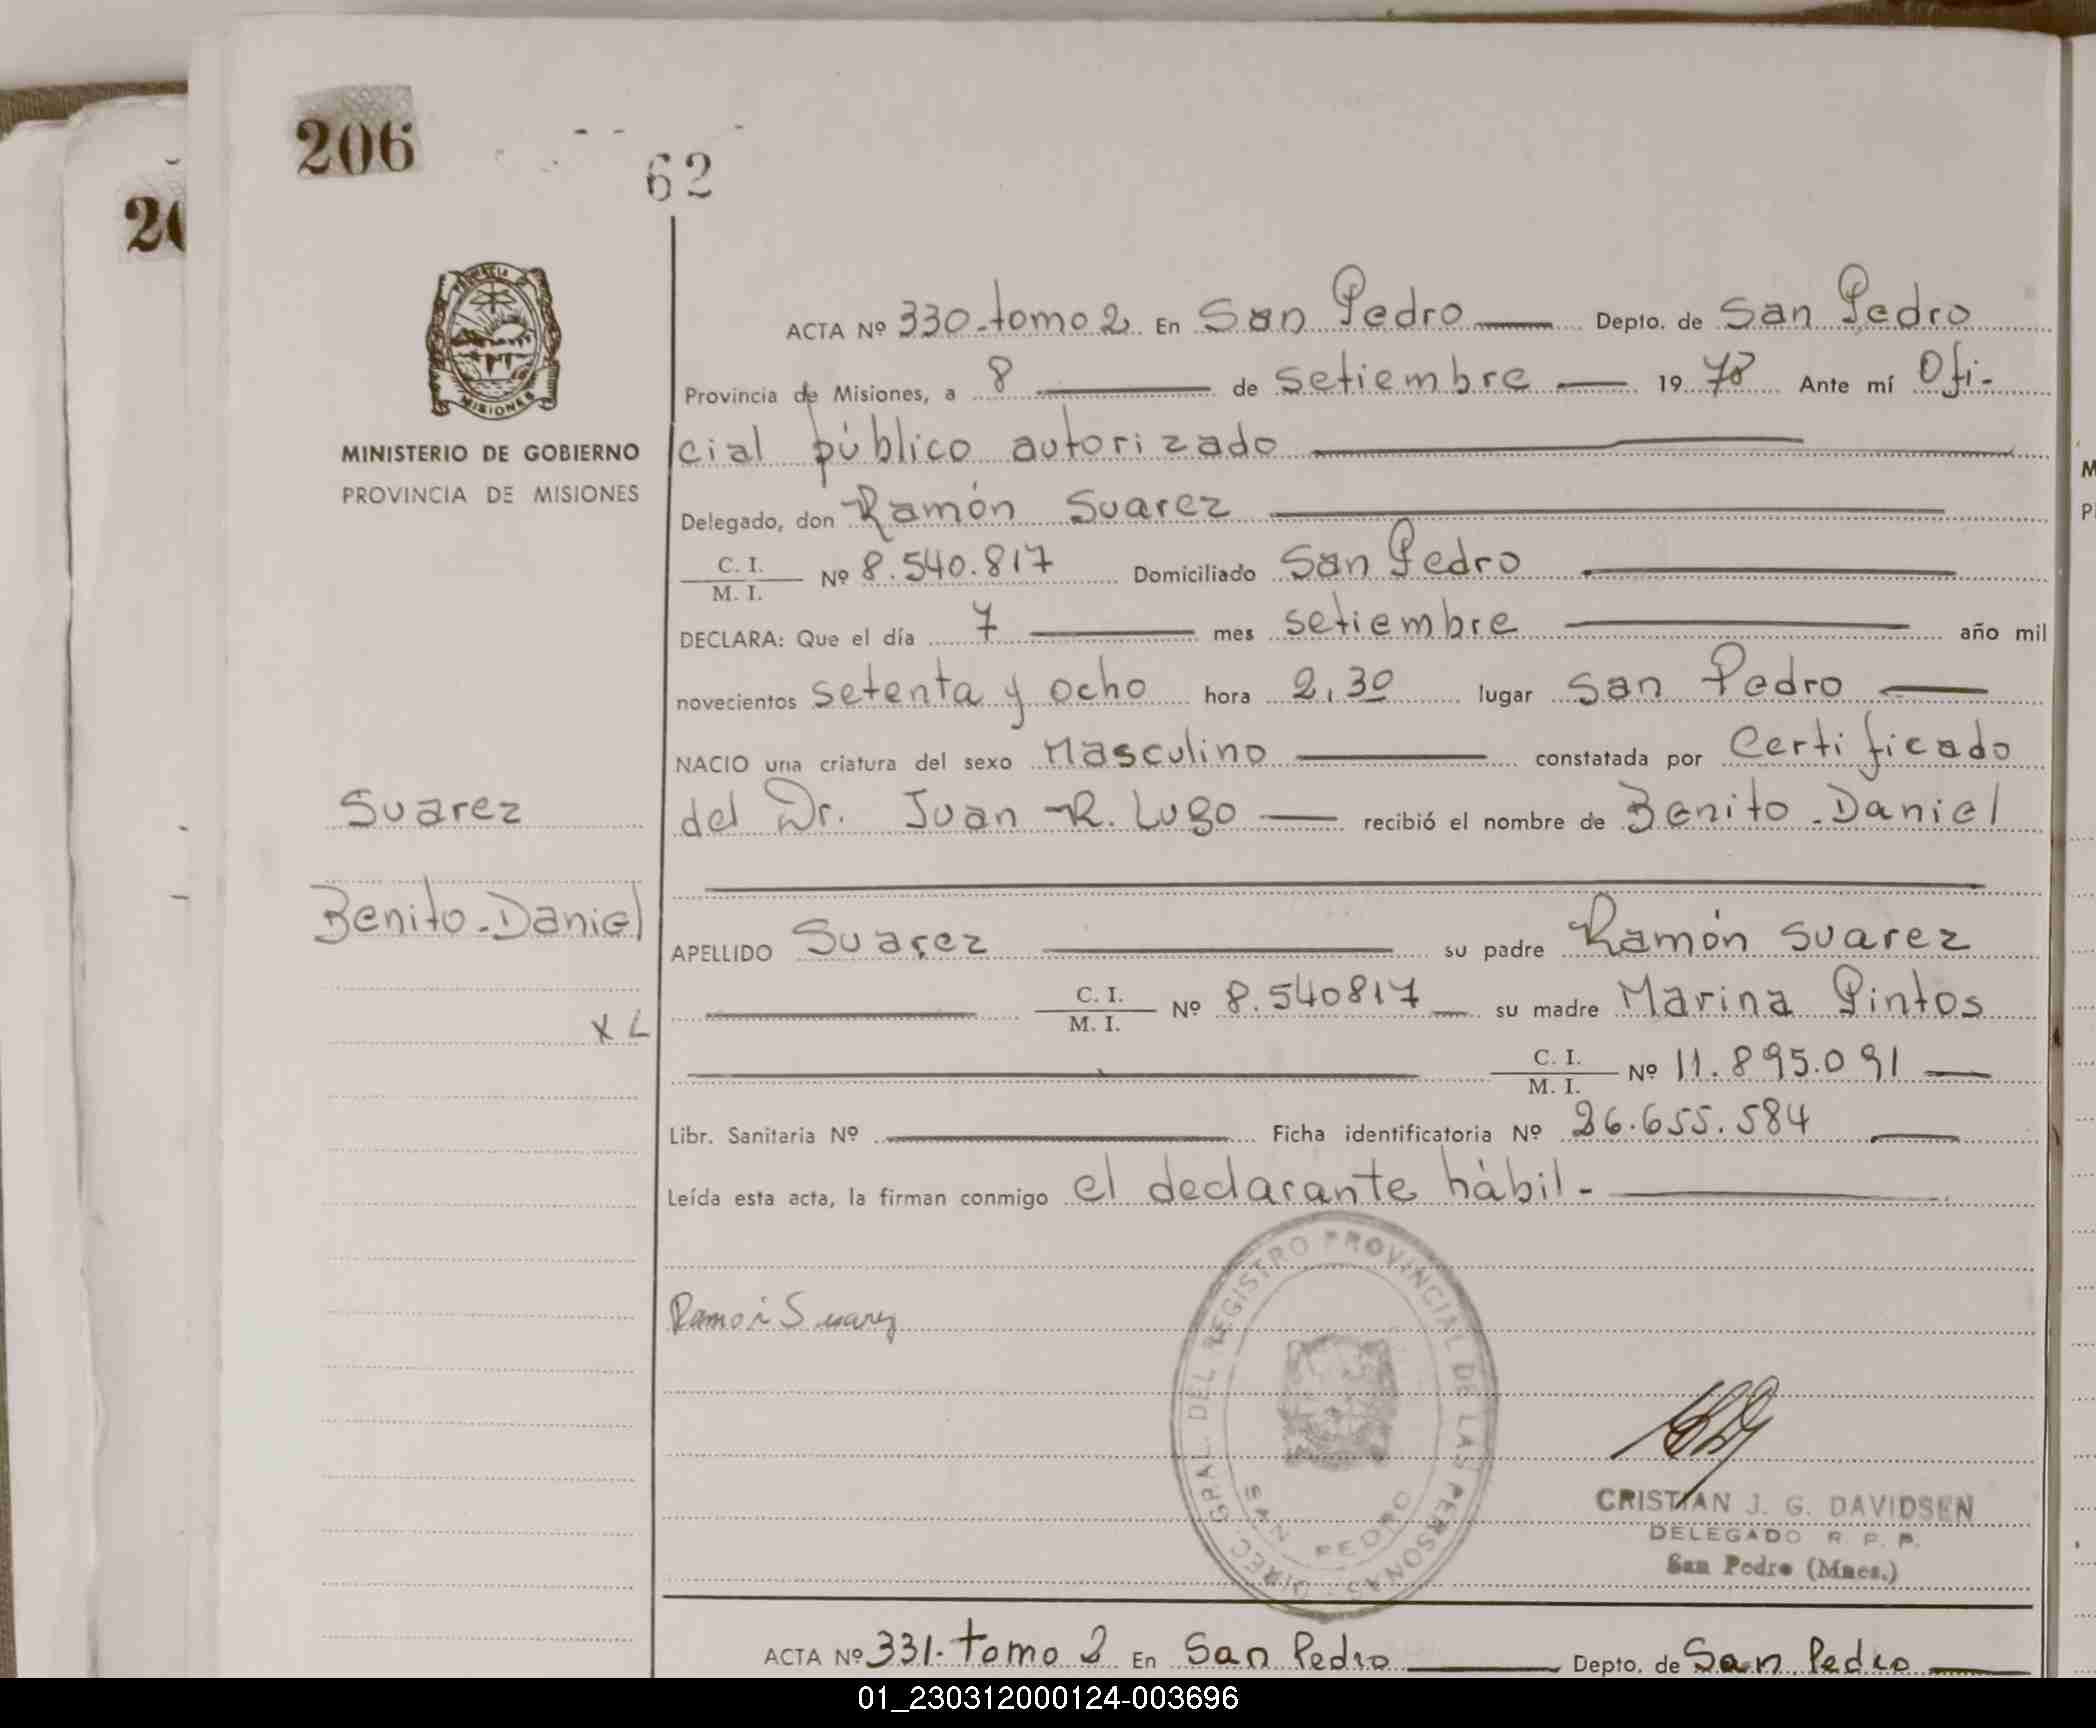 206
62
20
PROVINCIA
MISIONES
MINISTERIO DE GOBIERNO
PROVINCIA DE MISIONES
ACTA Nº 330-tomo 2 En San Pedro Depto. de San Pedro
Provincia de Misiones, a 8 de setiembre 19 78 Ante mí Ofi-
cial público autorizado
Delegado, don Ramón Suarez
C. I.
M. I. Nº 8.540.817 Domiciliado San Pedro
DECLARA: Que el día 7 mes setiembre año mil
novecientos setenta y ocho hora 2,30 lugar San Pedro
NACIO una criatura del sexo Masculino constatada por Certificado
del Dr. Juan R. Lugo recibió el nombre de Benito-Daniel
Suarez
Benito-Daniel
X L
APELLIDO Suarez su padre Ramón Suarez
C. I.
M. I. Nº 8.540817 su madre Marina Pintos
C. I.
M. I. Nº 11.895.091
Libr. Sanitaria Nº Ficha identificatoria Nº 26.655.584
Leída esta acta, la firman conmigo el declarante hàbil-
Ramon Suarez
DIREC. GRAL. DEL REGISTRO PROVINCIAL DE LAS PERSONAS
SAN PEDRO
CRISTIAN J. G. DAVIDSEN
DELEGADO R. P. P.
San Pedro (Mnes.)
ACTA Nº 331-tomo 2 En San Pedro Depto. de San Pedro
01_230312000124-003696